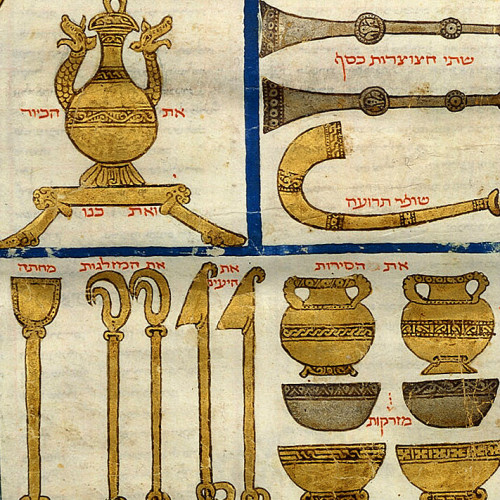 שתי חצוצרות כסף
שופר תרועה
את הכיור
ואת כנו
את הסירות
מזרקות
את
היעים
את המזלגות
מחתה